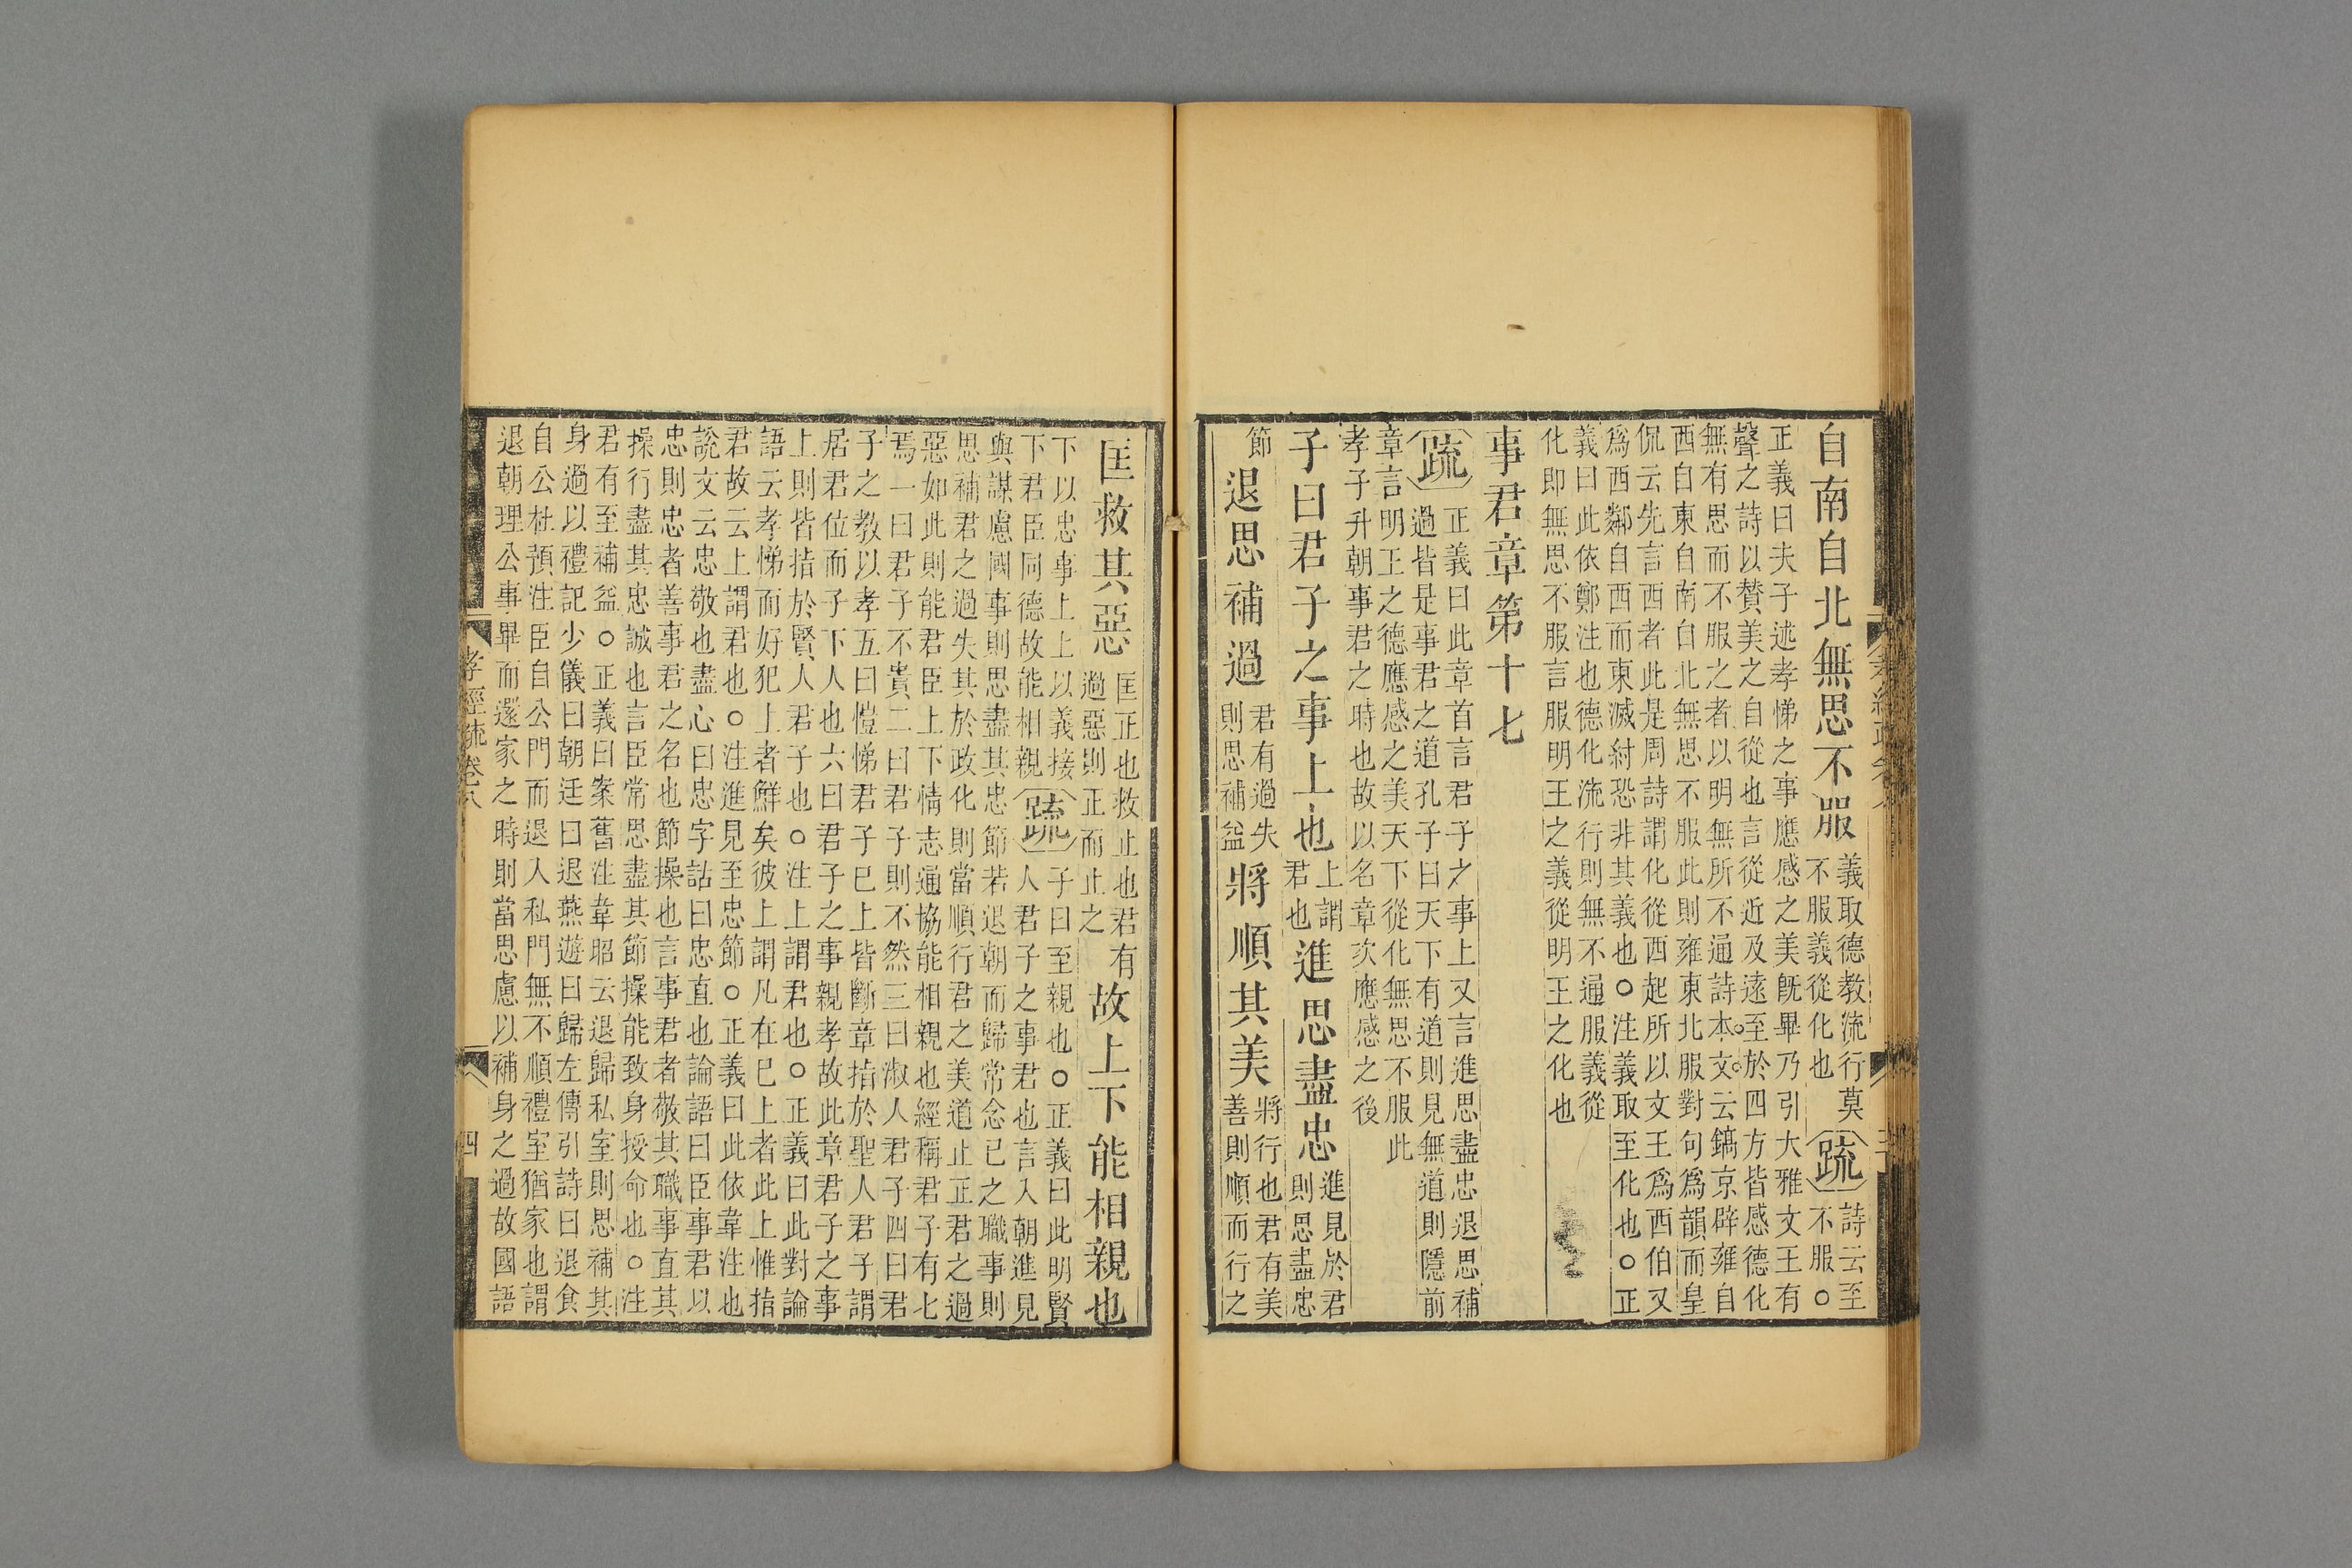 自南自北無思不服義取德教流行莫不服義從化也疏詩云至不服○
正義曰夫子述孝悌之事應感之美旣畢乃引大雅文王有
聲之詩以贊美之自從也言從近及遠至於四方皆感德化
無有思而不服之者以明無所不通詩本文云鎬京辟雍自
西自東自南自北無思不服此則雍東北服對句爲韻而皇
侃云先言西者此是周詩謂化從西起所以文王爲西伯又
爲西鄰自西而東滅紂恐非其義也○注義取至化也○正
義曰此依鄭注也德化流行則無不通服義從
化即無思不服言服明王之義從明王之化也
事君章第十七
疏正義曰此章首言君子之事上又言進思盡忠退思補
過皆是事君之道孔子曰天下有道則見無道則隱前
章言明王之德應感之美天下從化無思不服此
孝子升朝事君之時也故以名章次應感之後
子曰君子之事上也上謂君也進思盡忠進見於君則思盡忠
節退思補過君有過失則思補益將順其美將行也君有美善則順而行之
匡救其惡匡正也救止也君有過惡則正而止之故上下能相親也
下以忠事上上以義接
下君臣同德故能相親疏子曰至親也○正義曰此明賢
人君子之事君也言入朝進見
與謀慮國事則思盡其忠節若退朝而歸常念己之職事則
思補君之過失其於政化則當順行君之美道止正君之過
惡如此則能君臣上下情志通協能相親也經稱君子有七
焉一曰君子不貴二曰君子則不然三曰淑人君子四曰君
子之教以孝五曰愷悌君子已上皆斷章指於聖人君子謂
居君位而子下人也六曰君子之事親孝故此章君子之事
上則皆指於賢人君子也○注上謂君也○正義曰此對論
語云孝悌而好犯上者鮮矣彼上謂凡在己上者此上惟指
君故云上謂君也○注進見至忠節○正義曰此依韋注也
說文云忠敬也盡心曰忠字詁曰忠直也論語曰臣事君以
忠則忠者善事君之名也節操也言事君者敬其職事直其
操行盡其忠誠也言臣常思盡其節操能致身授命也○注
君有至補益○正義曰案舊注韋昭云退歸私室則思補其
身過以禮記少儀曰朝廷曰退燕遊曰歸左傳引詩曰退食
自公杜預注臣自公門而退入私門無不順禮室猶家也謂
退朝理公事畢而還家之時則當思慮以補身之過故國語
孝經疏卷八
四